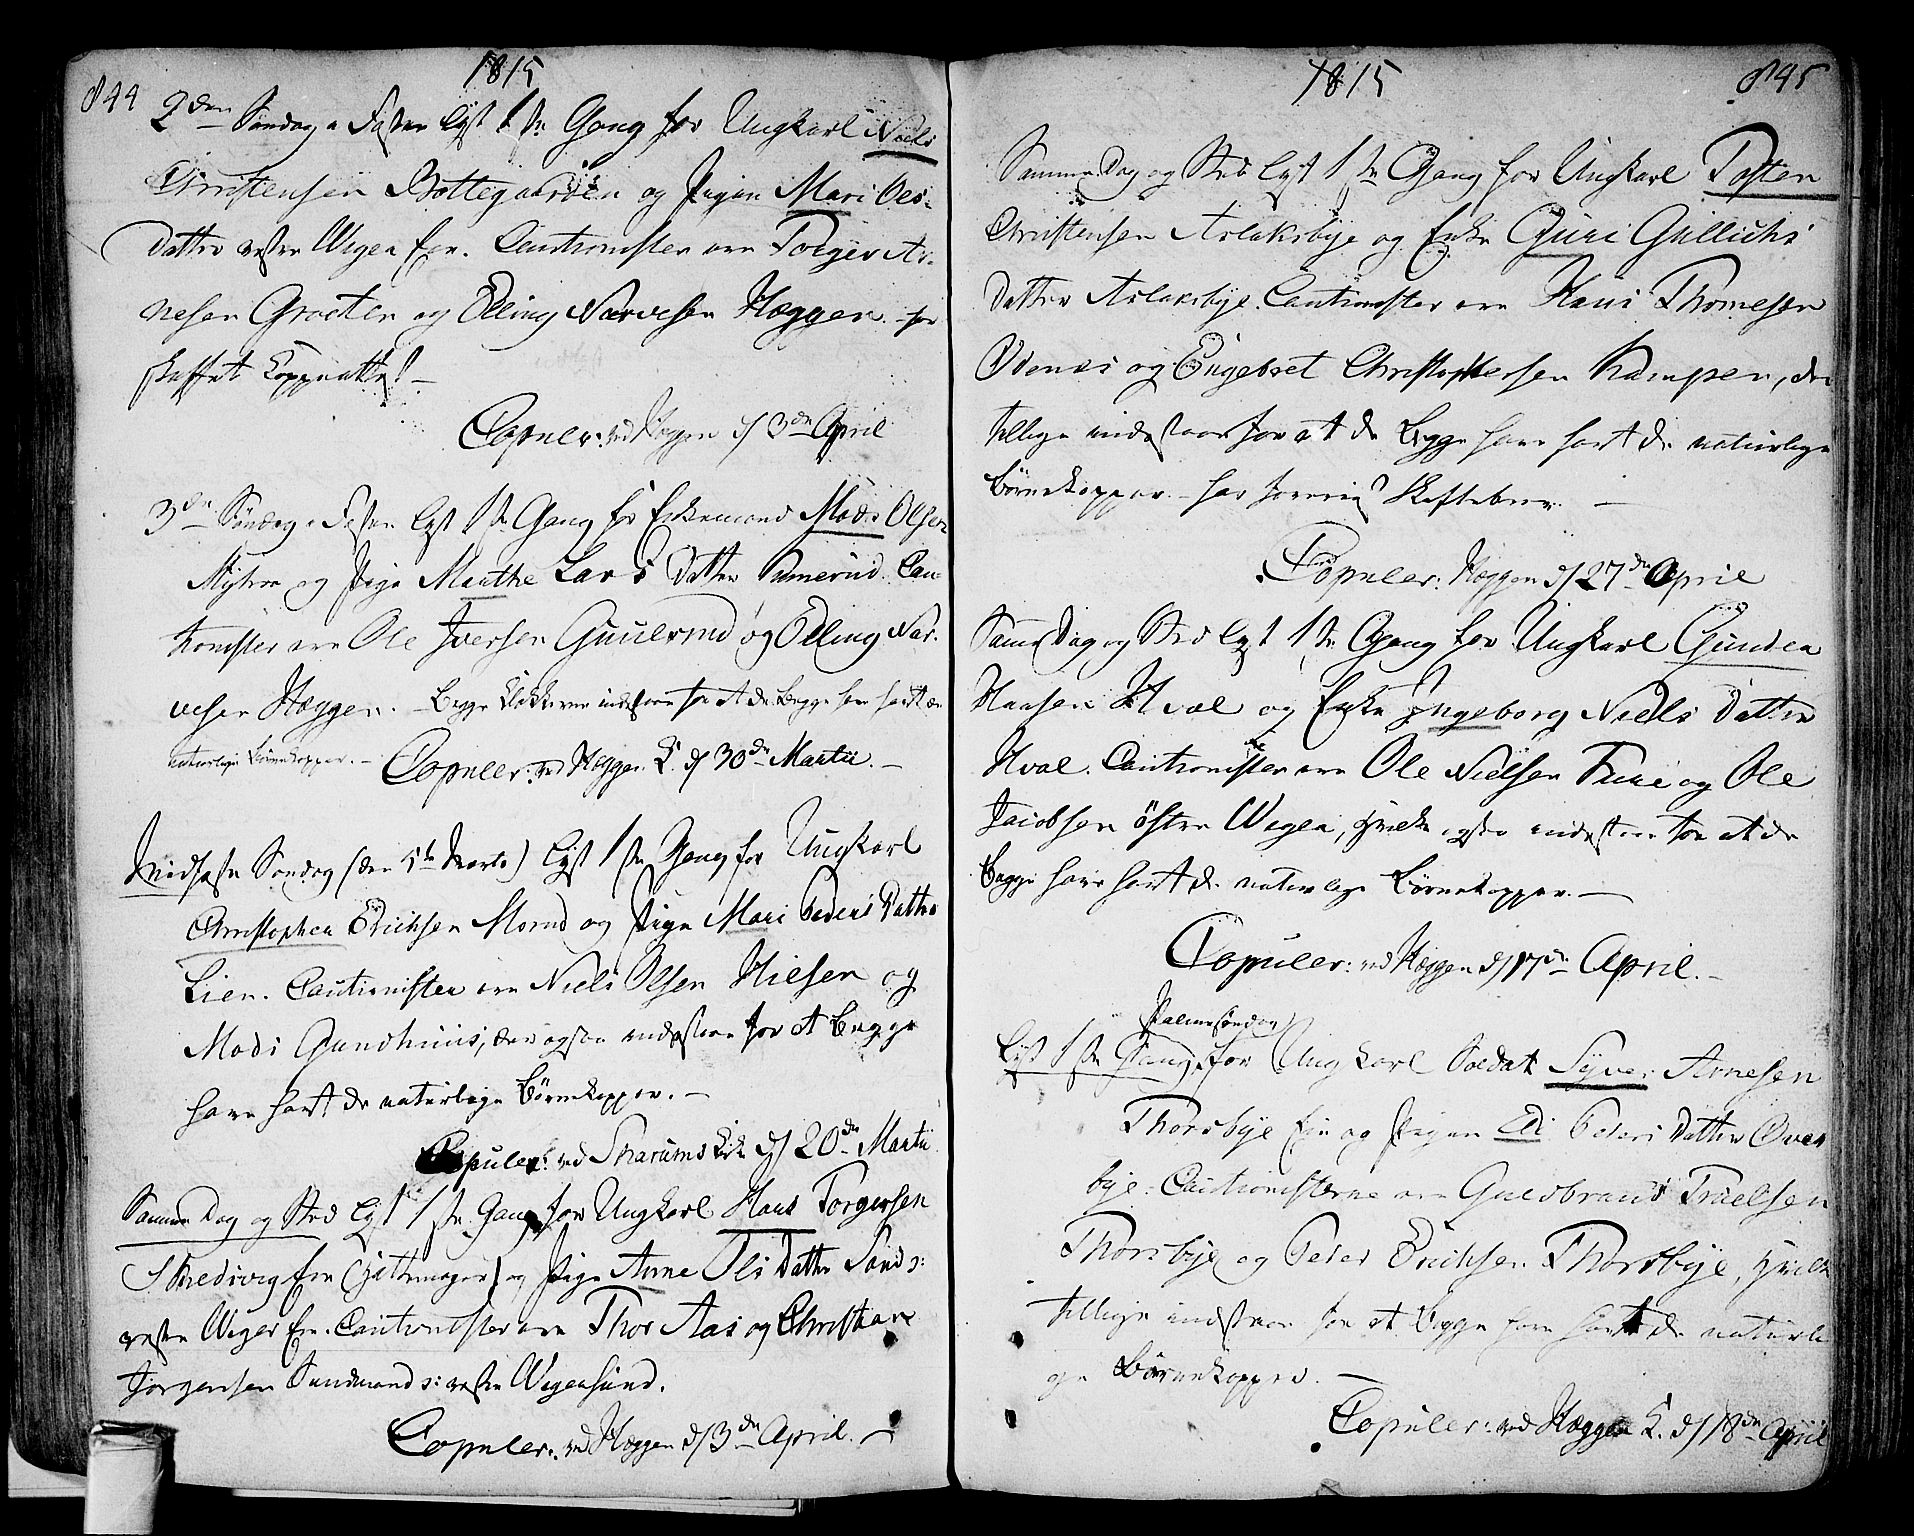 844
1815
2den Søndag i Fasten lyst 1ste Gang for Ungkarl Niels
Christensen Bottegaarden og Pigen Mari Ols
Datter vestre Wigen Eie. Cautionister ere Torger Ar-
nesen Groeten og Elling Narvesen Hæggen. - for
skaffet Koppeattest -
Copuler: ved Hæggen d/ 3de April
3de Søndag i Fasten lyst 1ste Gang for Enkemand Mads Olsen
Myhre og Pige Marthe Lars Datter Rumerud. Cau-
tionister ere Ole Iversen Guulerud og Elling Nar-
vesen Hæggen. - Begge Klokkerne indestaae for at de Begge have havt de
naturlige Børnekopper. - Copuler: ved Hæggen K. d/ 30de Martii. -
Midfaste Søndag (den 5te Marts) lyst 1ste Gang for Ungkarl
Christopher Erichsen Moend og Pige Mari Peders Datter
Lien. Cautionister ere Niels Olsen Hielsen og
Mads Gundhuus, der ogsaa indestaae for at Begge
have havt de naturlige Børnekopper. -
Copuler: ved Snarums Kirke d/ 20de Martii
Samme Dag og Sted lyst 1ste Gang for Ungkarl Hans Torgersen
Skredsvig Eie og Pige Anne Ols Datter Sands:
vestre Wigen Eie. Cautionister ere Thor Aas og Christian
Jørgensen Sandmands: vestre Wigensund.
Copuler: ved Hæggen d/ 3de April. -
1815
845
Samme Dag og Sted lyst 1ste Gang for Ungkarl Tosten
Christensen Aslaksbye og Enke Guri Gullichs
Datter Aslaksbye. Cautionister ere Hans Thomesen
Odenes og Engebret Christophersen Kampen, der
tillige indestaae for at de Begge have havt de naturlige
Børnekopper. - har foreviist Skiftebrev. -
Copuler: Hæggen d/ 27de April
Samme Dag og Sted lyst 1ste Gang for Ungkarl Gunder
Hansen Hval og Enke Ingeborg Niels Datter
Hval. Cautionister ere Ole Nielsen Fure og Ole
Jacobsen østre Wigen, hvilke ogsaa indestaae for at de
Begge have havt de naturlige Børnekopper. -
Copuler: ved Hæggen d/ 17de April. -
Palmesøndag
Lyst 1ste Gang for Ungkarl Soldat Syver Arnesen
Thorsbye Eie og Pigen Edi Peders Datter Over
bye. Cautionisterne ere Guldbrand Truelsen
Thorsbye og Peder Erichsen Thorsbye, hvilke
tillige indestaae for at Begge have havt de naturli
ge Børnekopper. -
Copuler: ved Hæggen K. d/ 18de April